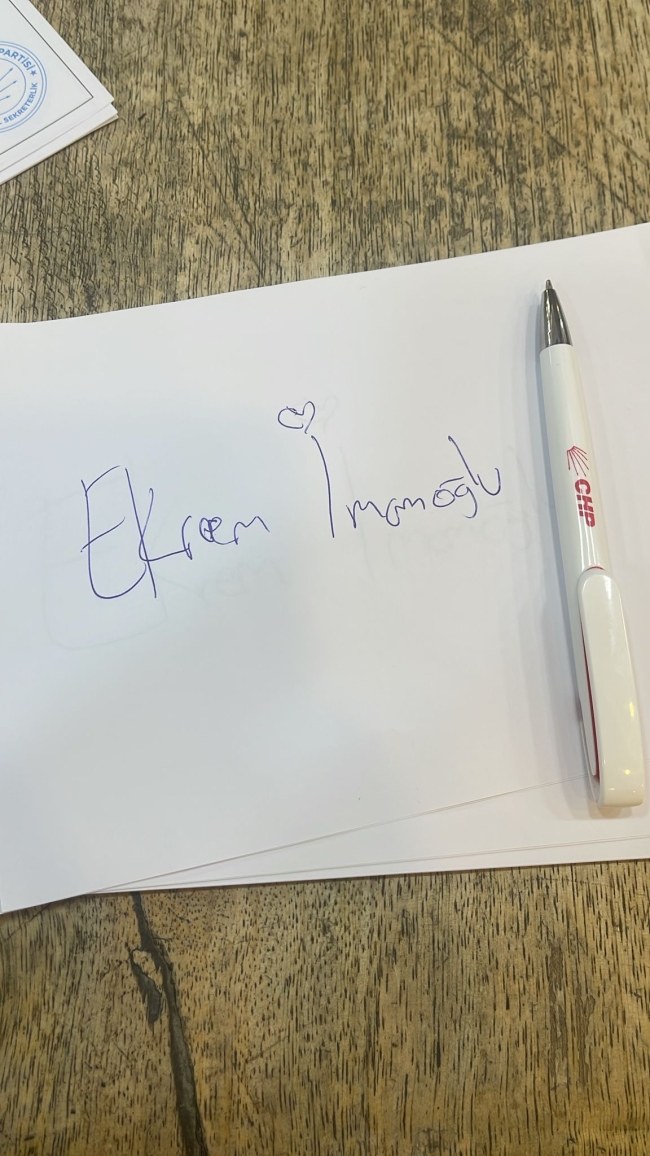 PARTİSİ
SEKRETERLİK
Ekrem İmamoğlu
CHP